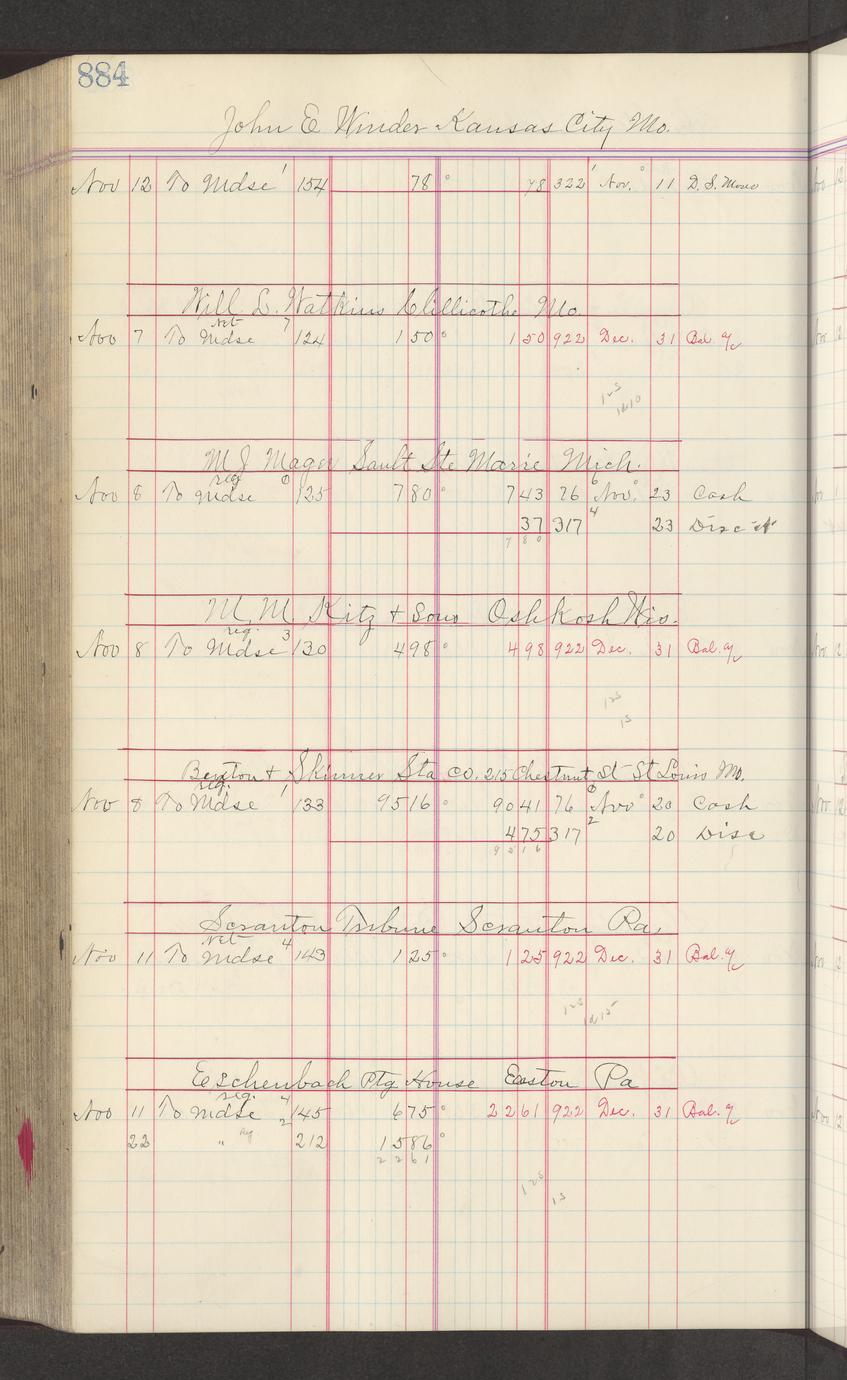 884
John E Winder Kansas City Mo.
Nov 12 To Mdse 1 154 78 78 322 1 Nov. 11 D. S. Moses
Will L. Watkins Chillicothe Mo.
Net 7
Nov 7 To Mdse 124 1 50 1 50 922 Dec. 31 Bal. a/c
125
1210
M J Mager Sault Ste Marie Mich.
reg 0
Nov 8 To Mdse 125 7 80 7 43 76 6 Nov. 23 Cash
37 317 4 23 Disc't
7 8 0
M. M. Kitz & Sons Oshkosh Wis.
reg. 3
Nov 8 To Mdse 130 4 98 4 98 922 Dec. 31 Bal. a/c
125
15
Benton & Skinner Sta Co. 215 Chestnut St St Louis Mo.
reg.
Nov 8 To Mdse 1 133 95 16 90 41 76 0 Nov 20 Cash
4 75 317 2 20 Disc
9 5 1 6
Scranton Tribune Scranton Pa.
Net 4
Nov 11 To Mdse 143 1 25 1 25 922 Dec. 31 Bal. a/c
125
1215
Eschenbach Ptg House Easton Pa
reg. 4
Nov 11 To Mdse 145 6 75 22 61 922 Dec. 31 Bal. a/c
22 " Reg 2 212 15 86
2 2 6 1
125
15